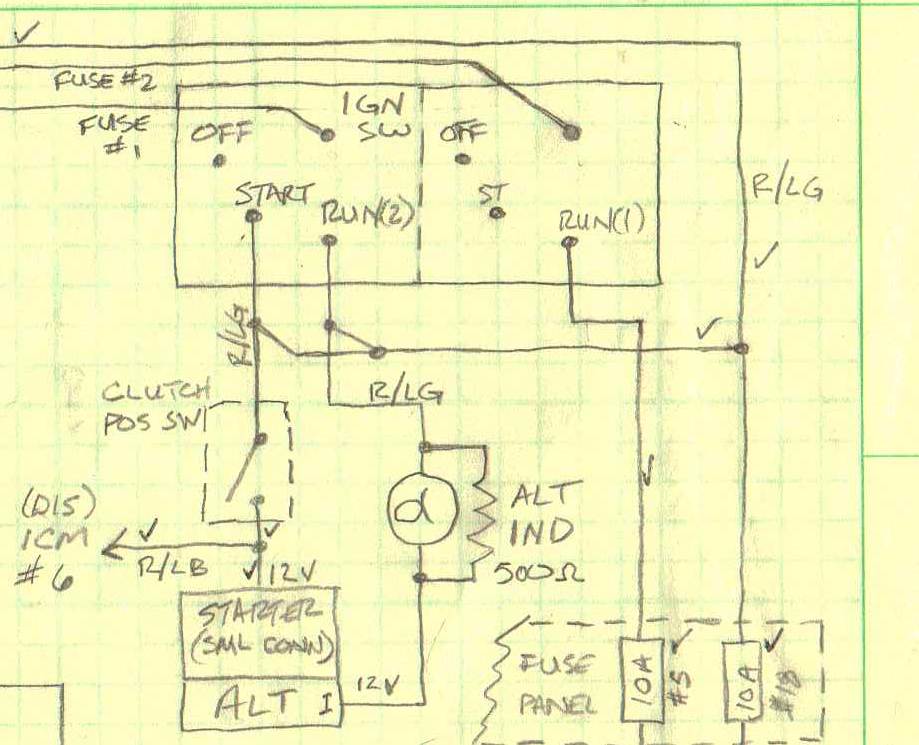 FUSE #2
FUSE
#1
IGN
SW
OFF
OFF
START
RUN(2)
ST
RUN(1)
R/LG
R/LG
R/LG
CLUTCH
POS SW
(DIS)
ICM
#6
R/LB
12V
ALT
IND
500Ω
STARTER
(SML CONN)
ALT I
12V
FUSE
PANEL
10A
#5
10A
#18